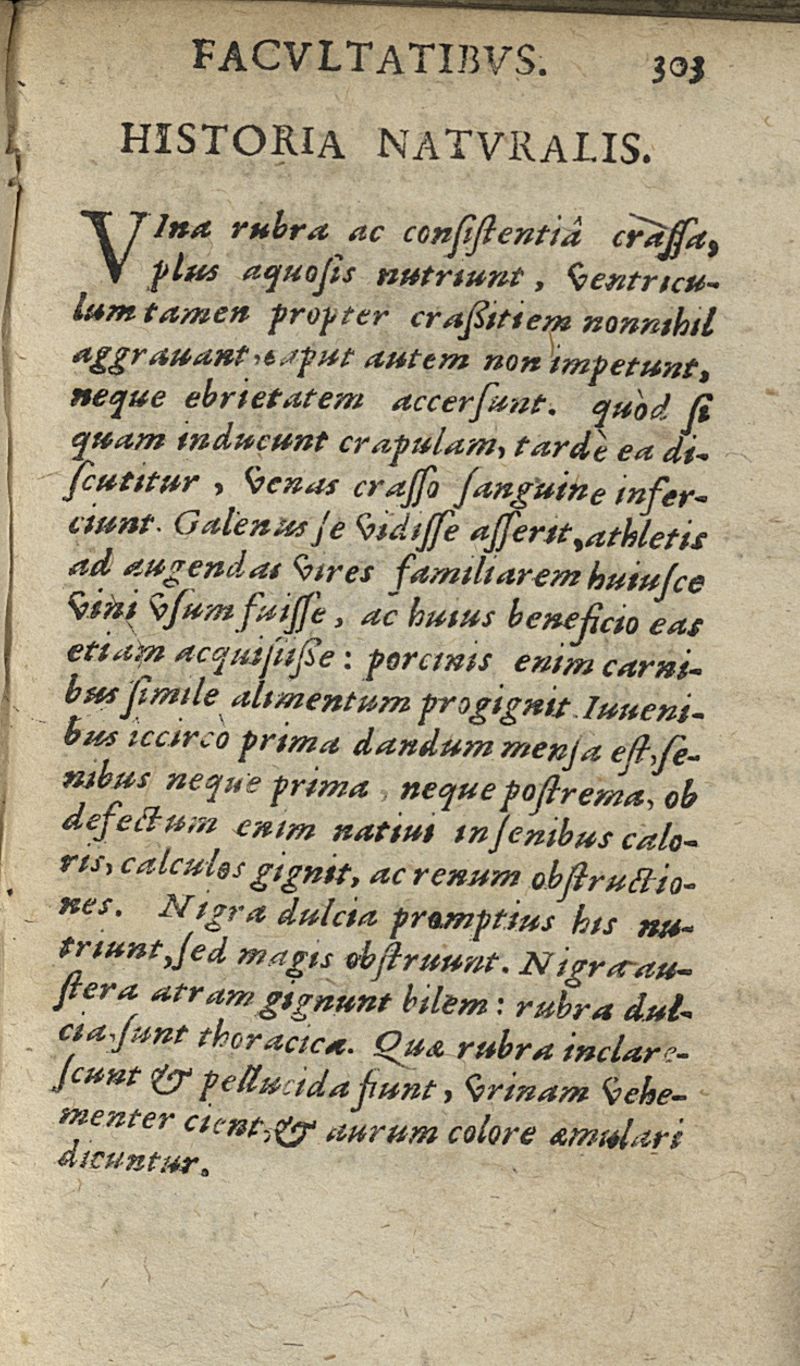 FACVLTATIBVS. 303
HISTORIA NATVRALIS.
VIna rubra ac conſiſtentiâ craſſa,
plus aquoſis nutriunt, ventricu-
lum tamen propter craßitiem nonnihil
aggrauant, caput autem non impetunt,
neque ebrietatem accerſunt. quòd ſi
quam inducunt crapulam, tardè ea di-
ſcutitur, venas craſſo ſanguine infer-
ciunt. Galenus ſe vidiſſe aſſerit, athletis
ad augendas vires familiarem huiuſce
vini vſum fuiſſe, ac huius beneficio eas
etiam acquiſiiße: porcinis enim carni-
bus ſimile alimentum progignit. Iuueni-
bus iccircò prima dandum menſa eſt, ſe-
nibus neque prima, neque poſtrema, ob
defectum enim natiui in ſenibus calo-
ris, calculos gignit, ac renum obſtructio-
nes. Nigra dulcia promptius his nu-
triunt, ſed magis obſtruunt. Nigra au-
ſtera atram gignunt bilem: rubra dul-
cia ſunt thoracica. Quæ rubra inclare-
ſcunt & pellucida fiunt, vrinam vehe-
menter cient, & aurum colore æmulari
dicuntur.